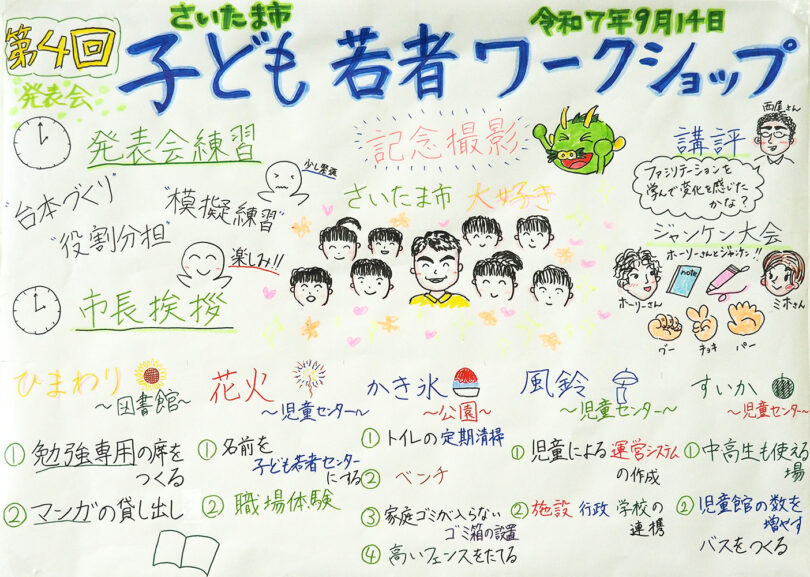 第4回
さいたま市
令和7年9月14日
子ども 若者 ワークショップ
発表会
発表会練習
"台本づくり"
"役割分担"
"模擬練習"
少し緊張
楽しみ!!
市長挨拶
記念撮影
さいたま市 大好き
講評
西尾さん
ファシリテーションを
学んで変化を感じた
かな?
ジャンケン大会
ホーリーさんとジャンケン!!
note
ホーリーさん
ミホさん
グー チョキ パー
ひまわり
~図書館~
① 勉強専用の席を
つくる
② マンガの貸し出し
花火
~児童センター~
① 名前を
子ども若者センター
にする
② 職場体験
かき氷
~公園~
① トイレの定期清掃
② ベンチ
③ 家庭ゴミが入らない
ゴミ箱の設置
④ 高いフェンスをたてる
風鈴
~児童センター~
① 児童による運営システム
の作成
② 施設 行政 学校の
連携
すいか
~児童センター~
① 中高生も使える
場
② 児童館の数を
増やす
バスをつくる